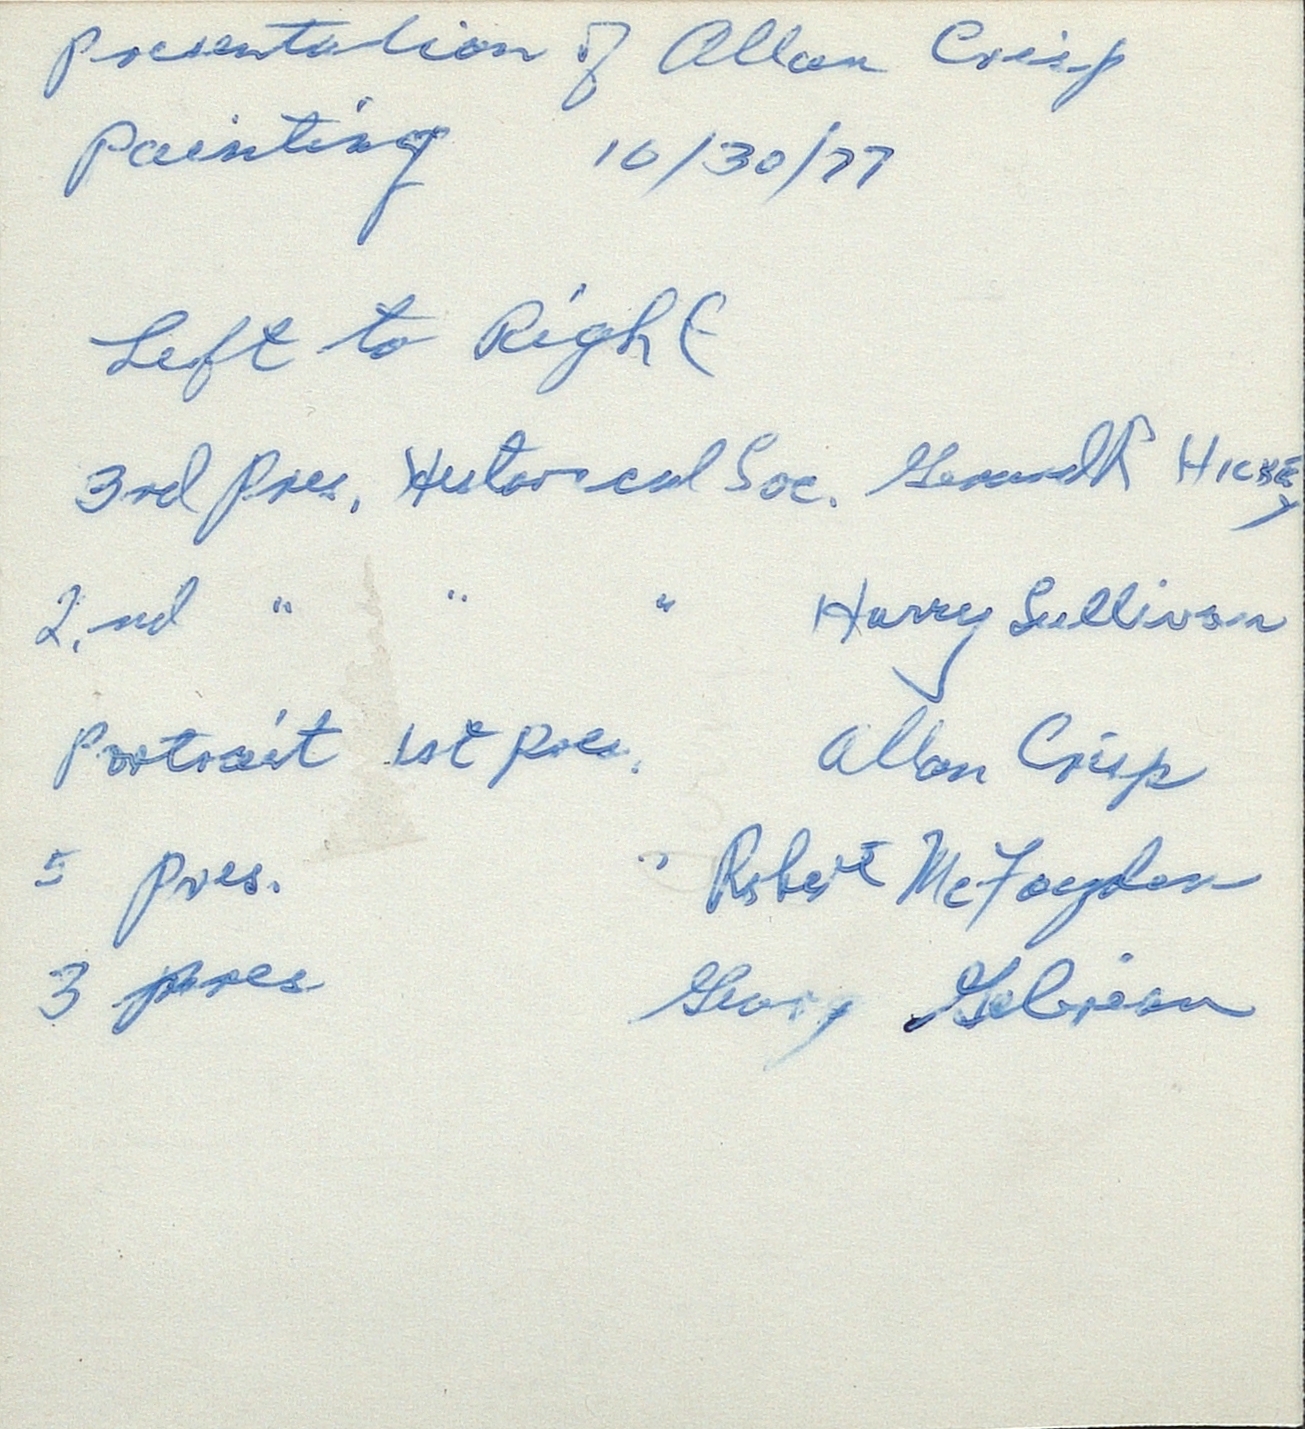 Presentation of Allan Crisp
Painting 10/30/77
Left to Right
3rd Pres. Historical Soc. HICKEY
2.nd " " " Harry Sullivan
Portrait 1st Pres. Allan Crisp
5 Pres. " Robert McFayden
3 pres